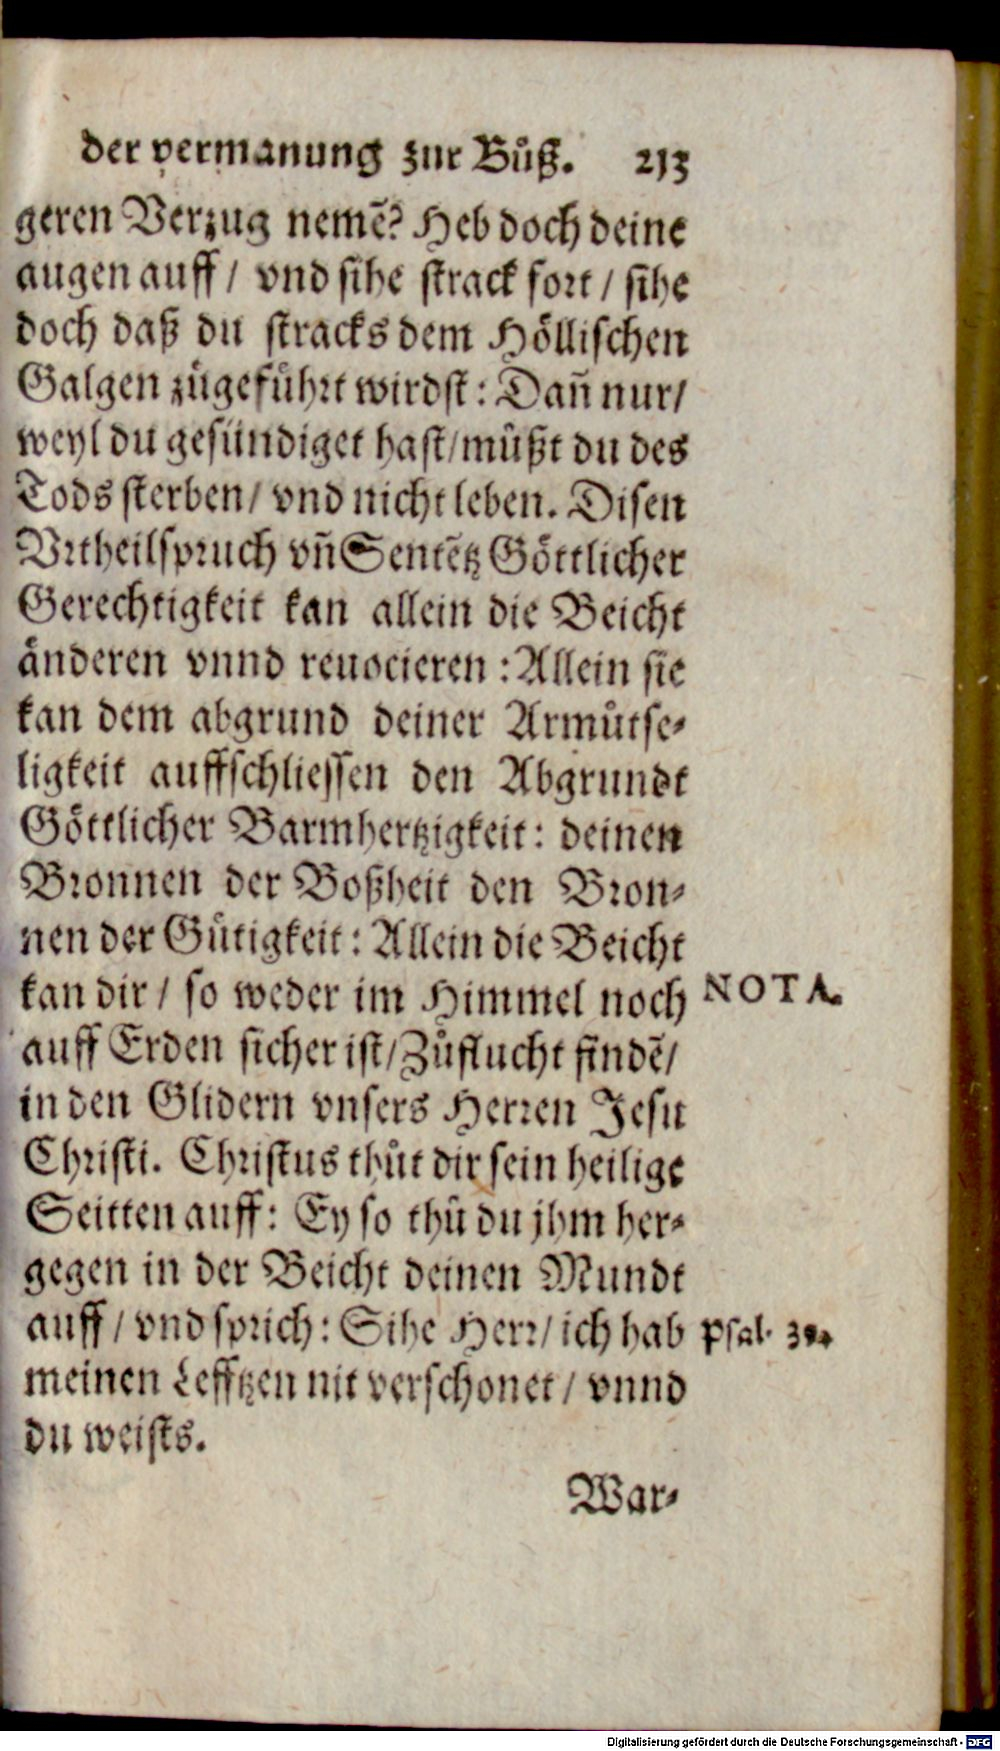 der vermanung zur Bůß. 213
geren Verzug nemẽ? Heb doch deine
augen auff / vnd sihe strack fort / sihe
doch daß du stracks dem Höllischen
Galgen zůgeführt wirdst: Dañ nur/
weyl du gesündiget hast/můßt du des
Tods sterben/ vnd nicht leben. Disen
Vrtheilspruch vñ Sentẽtz Göttlicher
Gerechtigkeit kan allein die Beicht
änderen vnnd reuocieren : Allein sie
kan dem abgrund deiner Armůtse-
ligkeit auffschliessen den Abgrundt
Göttlicher Barmhertzigkeit: deinen
Bronnen der Boßheit den Bron-
nen der Gütigkeit: Allein die Beicht
kan dir / so weder im Himmel noch
NOTA.
auff Erden sicher ist/ Zůflucht findẽ/
in den Glidern vnsers Herren Jesu
Christi. Christus thůt dir sein heilige
Seitten auff: Ey so thů du jhm her-
gegen in der Beicht deinen Mundt
auff / vnd sprich: Sihe Herr/ ich hab
Psal.
meinen Lefftzen nit verschonet / vnnd
du weists.
War-
Digitalisierung gefördert durch die Deutsche Forschungsgemeinschaft - DFG